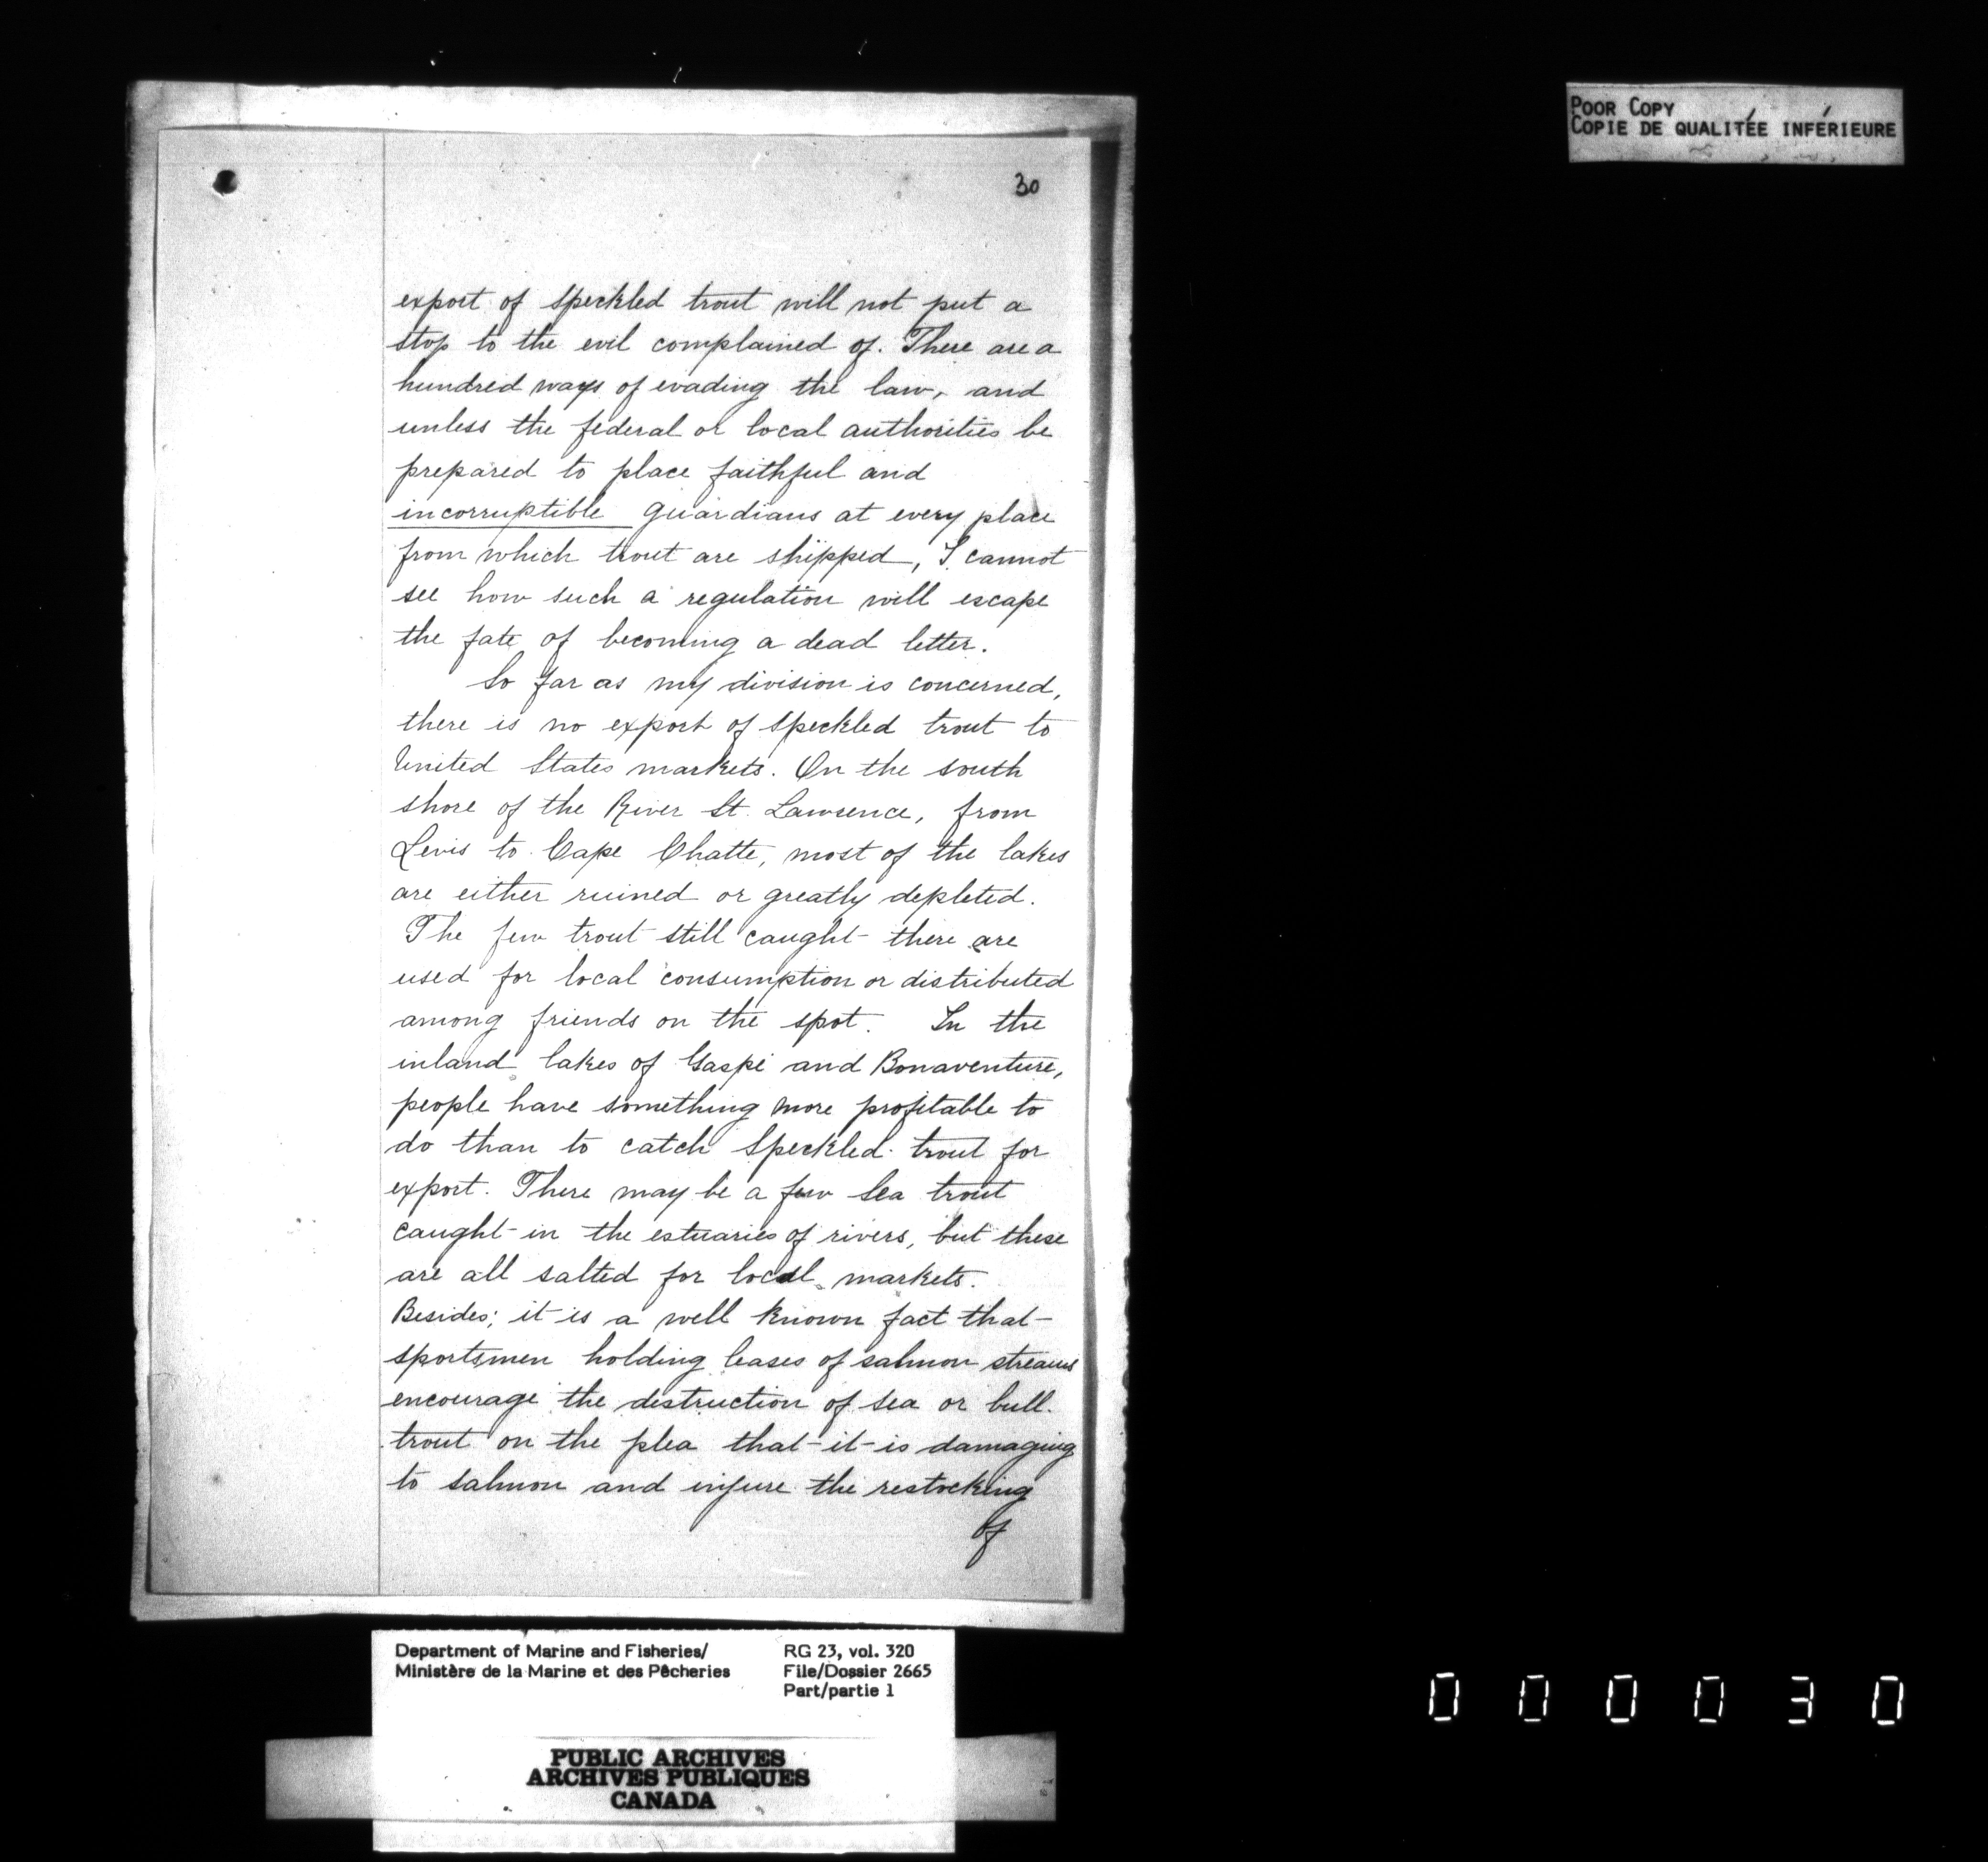 POOR COPY
COPIE DE QUALITÉE INFÉRIEURE
30
export of speckled trout will not put a
stop to the evil complained of. There are a
hundred ways of evading the law, and
unless the federal or local authorities be
prepared to place faithful and
incorruptible guardians at every place
from which trout are shipped, I cannot
see how such a regulation will escape
the fate of becoming a dead letter.
So far as my division is concerned,
there is no export of speckled trout to
United States markets. On the south
shore of the River St. Lawrence, from
Levis to Cape Chatte, most of the lakes
are either ruined or greatly depleted.
The few trout still caught there are
used for local consumption or distributed
among friends on the spot. In the
inland lakes of Gaspé and Bonaventure,
people have something more profitable to
do than to catch speckled trout for
export. There may be a few sea trout
caught in the estuaries of rivers, but these
are all salted for local markets.
Besides; it is a well known fact that
sportsmen holding leases of salmon streams
encourage the destruction of sea or bull
trout on the plea that it is damaging
to salmon and injure the restocking
of
Department of Marine and Fisheries/
Ministère de la Marine et des Pêcheries
RG 23, vol. 320
File/Dossier 2665
Part/partie 1
PUBLIC ARCHIVES
ARCHIVES PUBLIQUES
CANADA
000030